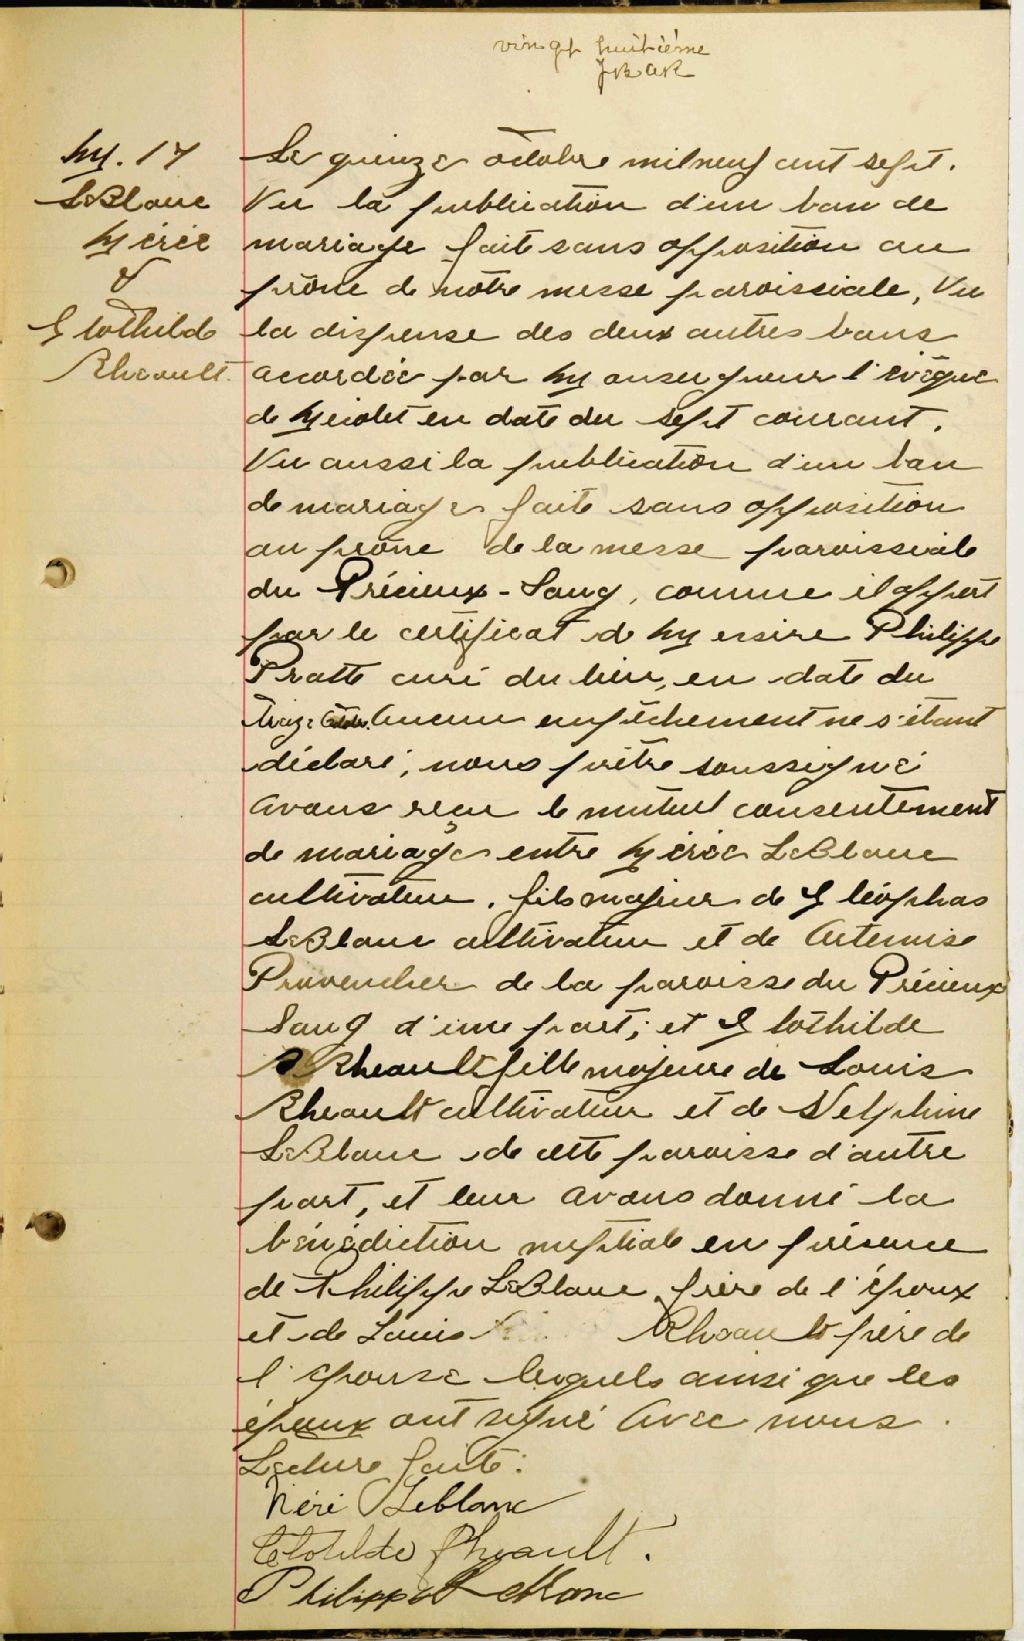 vingt huitième
JBAR
M. 17
LeBlanc
Nérée
&
Clothilde
Rheault.
Le quinze octobre mil neuf cent sept.
Vu la publication d'un ban de
mariage faite sans opposition au
prône de notre messe paroissiale, Vu
la dispense des deux autres bans
accordée par Monseigneur l'évêque
de Nicolet en date du sept courant.
Vu aussi la publication d'un ban
de mariage faite sans opposition
au prône de la messe paroissiale
du Précieux-Sang, comme il appert
par le certificat de Messire Philippe
Pratte curé du lieu, en date du
treize Aucun empêchement ne s'étant
déclaré, nous prêtre soussigné
avons reçu le mutuel consentement
de mariage entre Nérée LeBlanc
cultivateur, fils majeur de Cléophas
LeBlanc cultivateur et de Artemise
Provencher de la paroisse du Précieux
Sang d'une part; et Clothilde
Rheault fille majeure de Louis
Rheault cultivateur et de Delphine
LeBlanc de cette paroisse d'autre
part, et leur avons donné la
bénédiction nuptiale en présence
de Philippe LeBlanc frère de l'époux
et de Louis Rheault père de
l'épouse lesquels ainsi que les
époux ont signé avec nous.
Lecture faite.
Néré Leblanc
Clotilde Rheault.
Philippe Leblanc